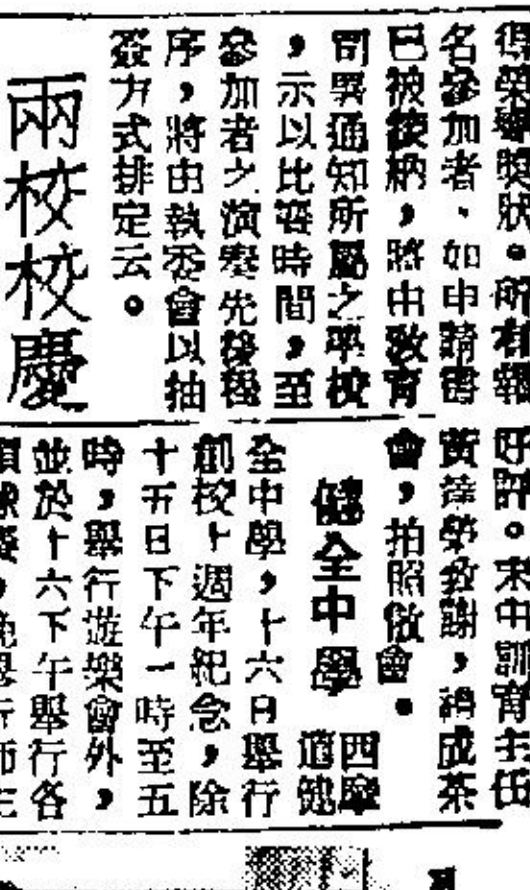 得榮譽獎狀。所有報
名參加者、如申請書
已被接納，將由教育
司署通知所屬之學校
，示以比賽時間，至
參加者之演奏先後程
序，將由執委會以抽
簽方式排定云。
兩校校慶
好評。末由訓育主任
黃榮致謝，禮成茶
會，拍照散會。
健全中學
西摩
道健
全中學，十六日舉行
創校十週年紀念，除
十五日下午一時至五
時，舉行遊樂會外，
並於十六下午舉行各
項球賽，晚舉行師生